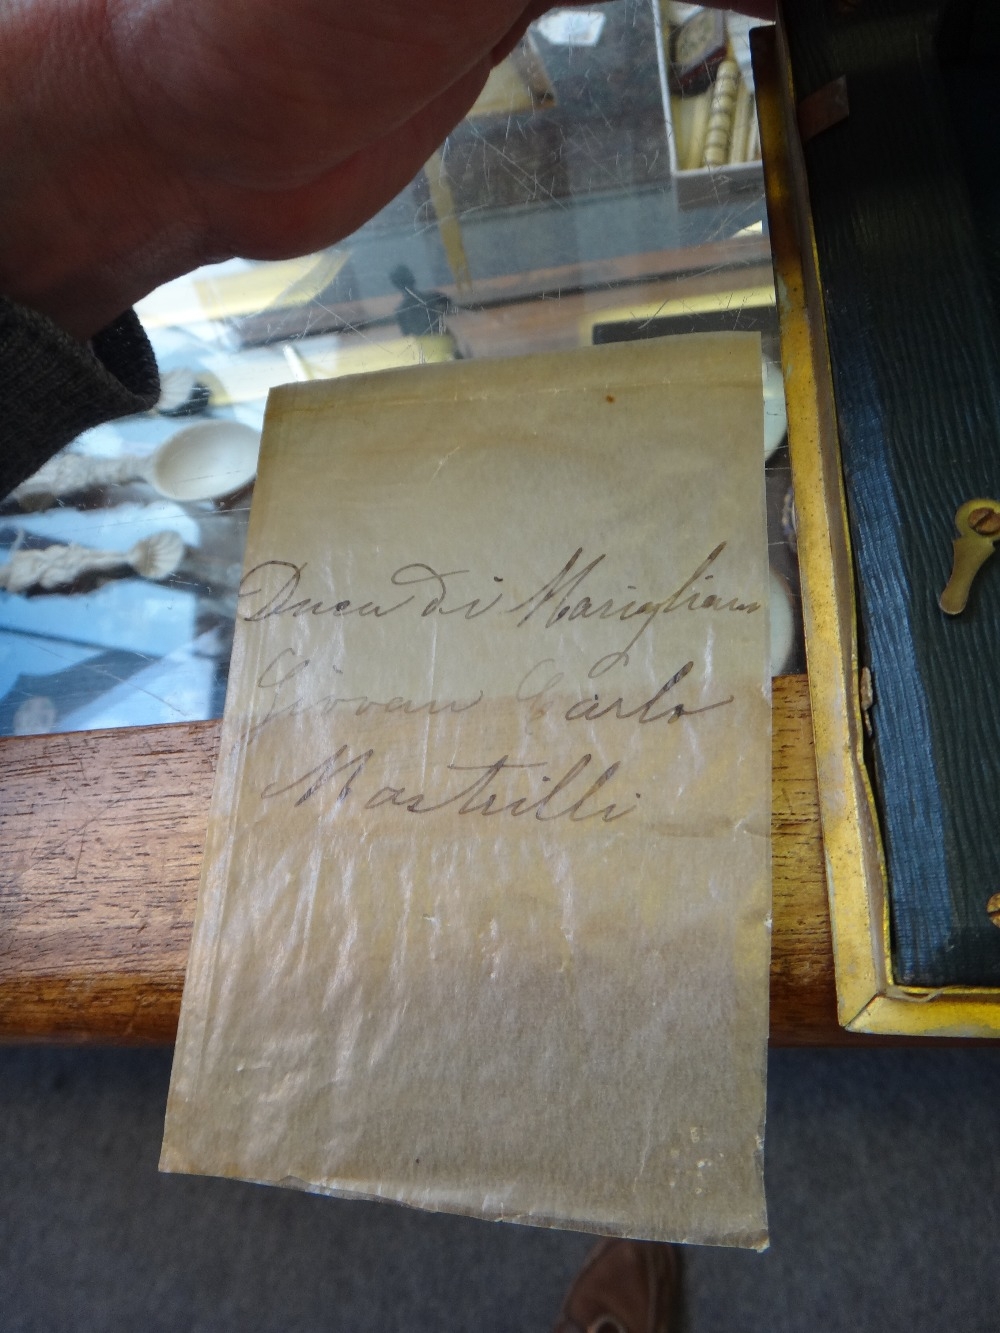 Duca di Marigliano
Giovan Carlo
Mastrilli